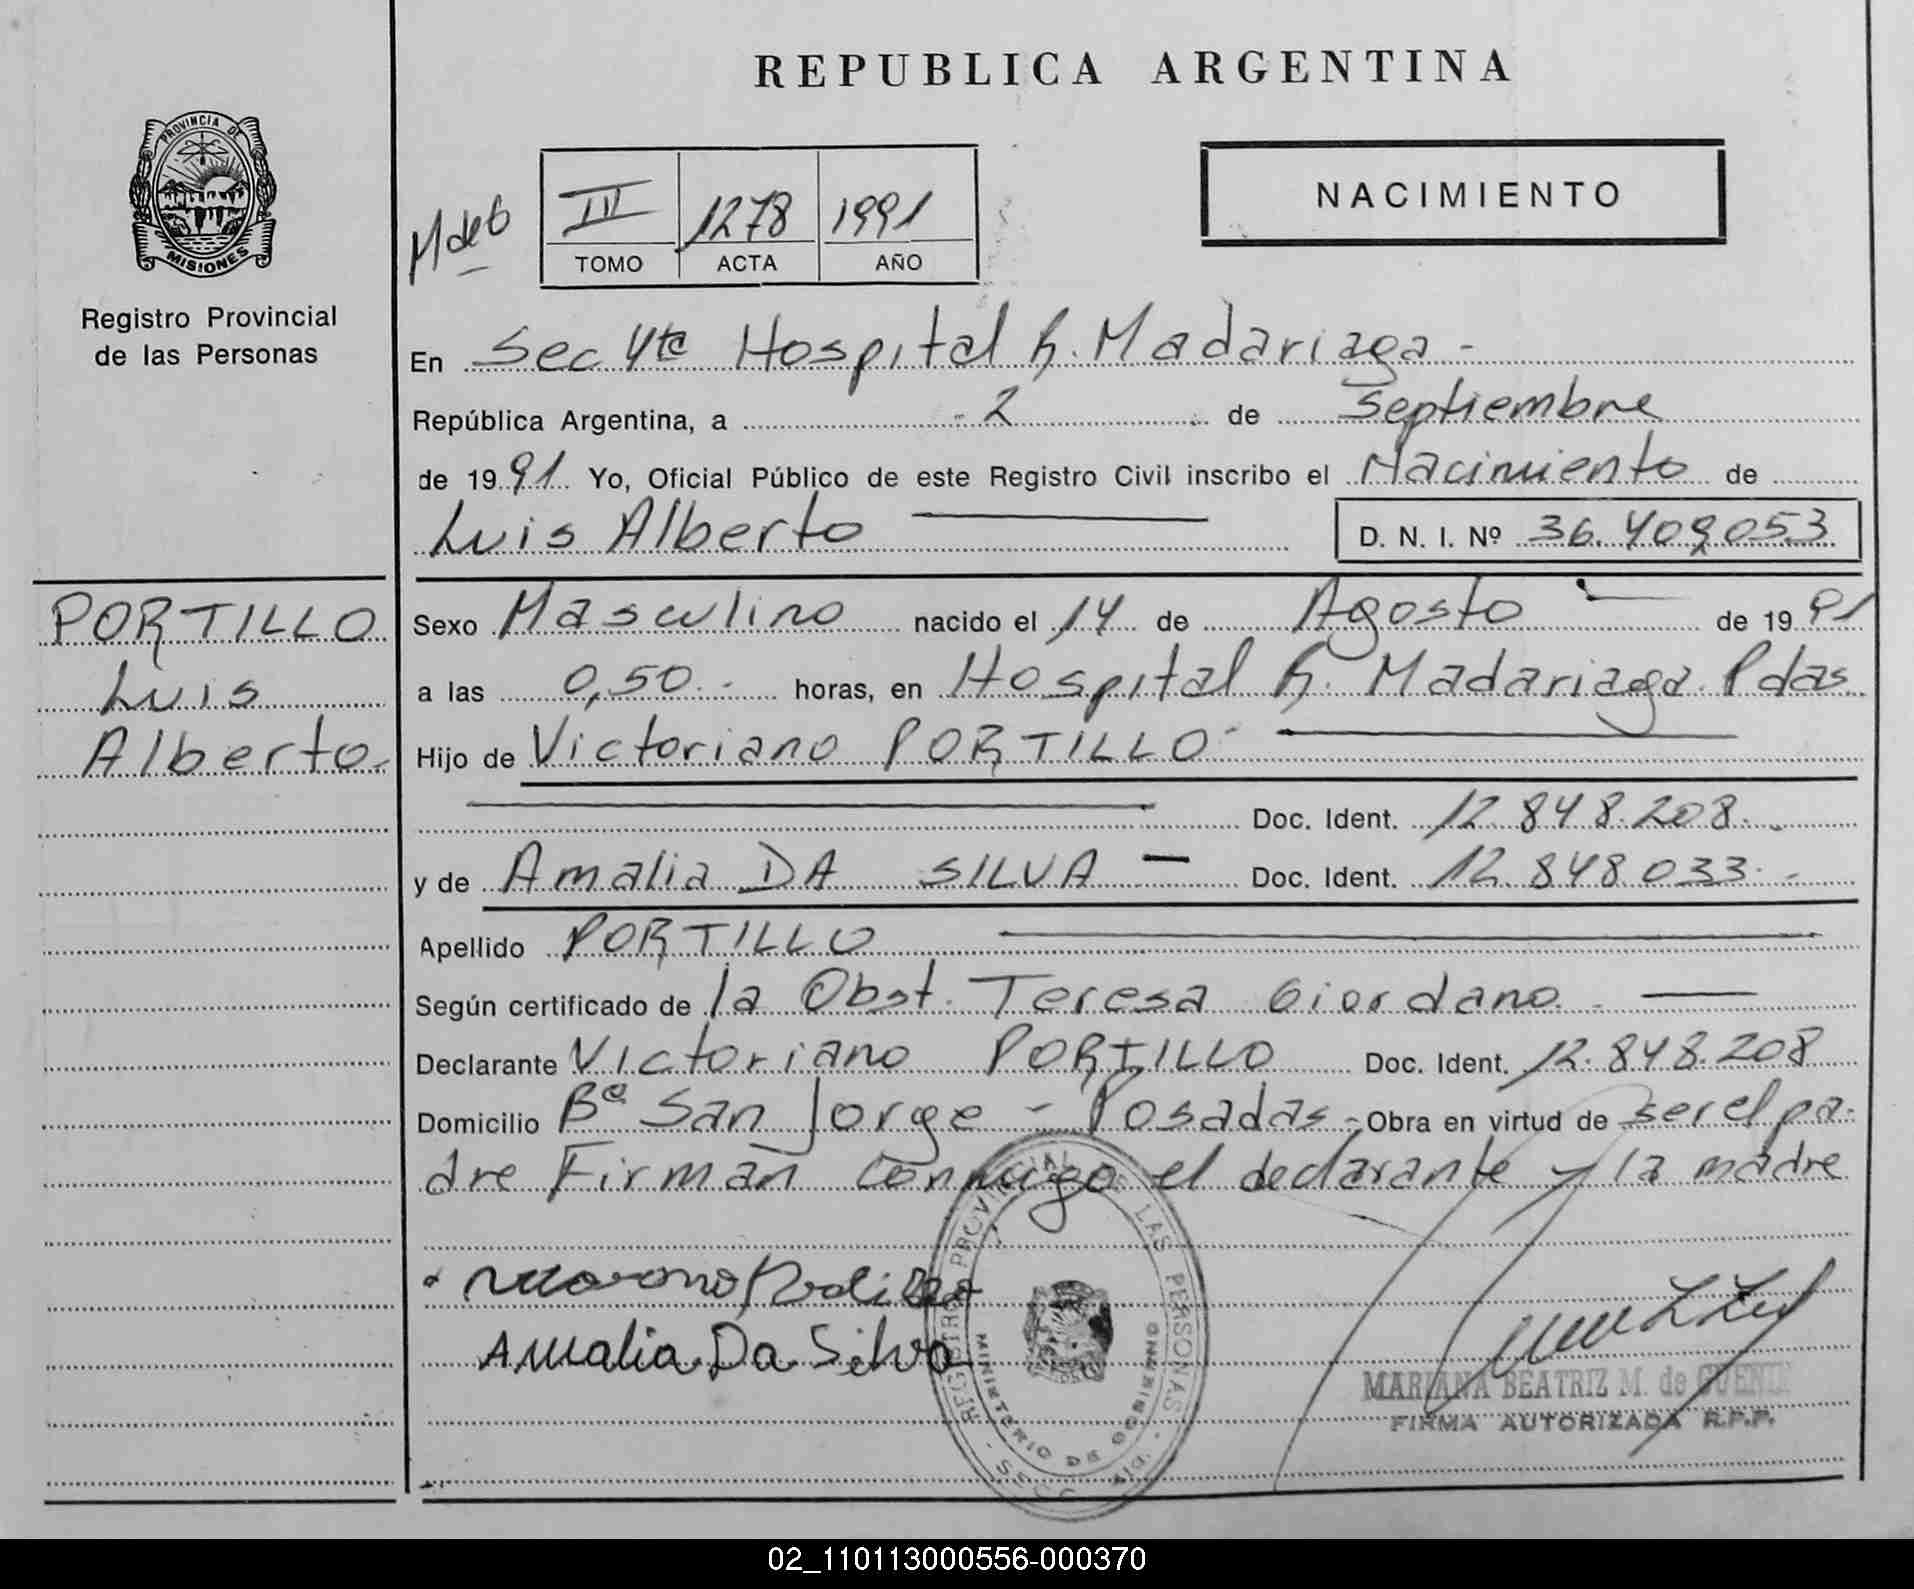 REPUBLICA ARGENTINA
PROVINCIA DE
MISIONES
Registro Provincial
de las Personas
NACIMIENTO
III 1278 1991
TOMO ACTA AÑO
En Sec 4ta Hospital R. Madariaga -
República Argentina, a - 2 de Septiembre
de 1991 Yo, Oficial Público de este Registro Civil inscribo el Nacimiento de
Luis Alberto
D. N. I. Nº 36.409.053
PORTILLO
Luis
Alberto.-
Sexo Masculino nacido el 14 de Agosto de 1991
a las 0,50.- horas, en Hospital R. Madariaga. Pdas
Hijo de Victoriano PORTILLO -
Doc. Ident. 12.848.208.-
y de Amalia DA SILVA — Doc. Ident. 12.848.033.-
Apellido PORTILLO
Según certificado de la Obst. Teresa Giordano. -
Declarante Victoriano PORTILLO Doc. Ident. 12.848.208
Domicilio Bº San Jorge - Posadas - Obra en virtud de ser el pa-
dre Firman conmigo el declarante y la madre
Amalia Da Silva
REGISTRO PROVINCIAL DE LAS PERSONAS
MINISTERIO DE GOBIERNO
MARIANA BEATRIZ M. de
FIRMA AUTORIZADA R.P.P.
02_110113000556-000370